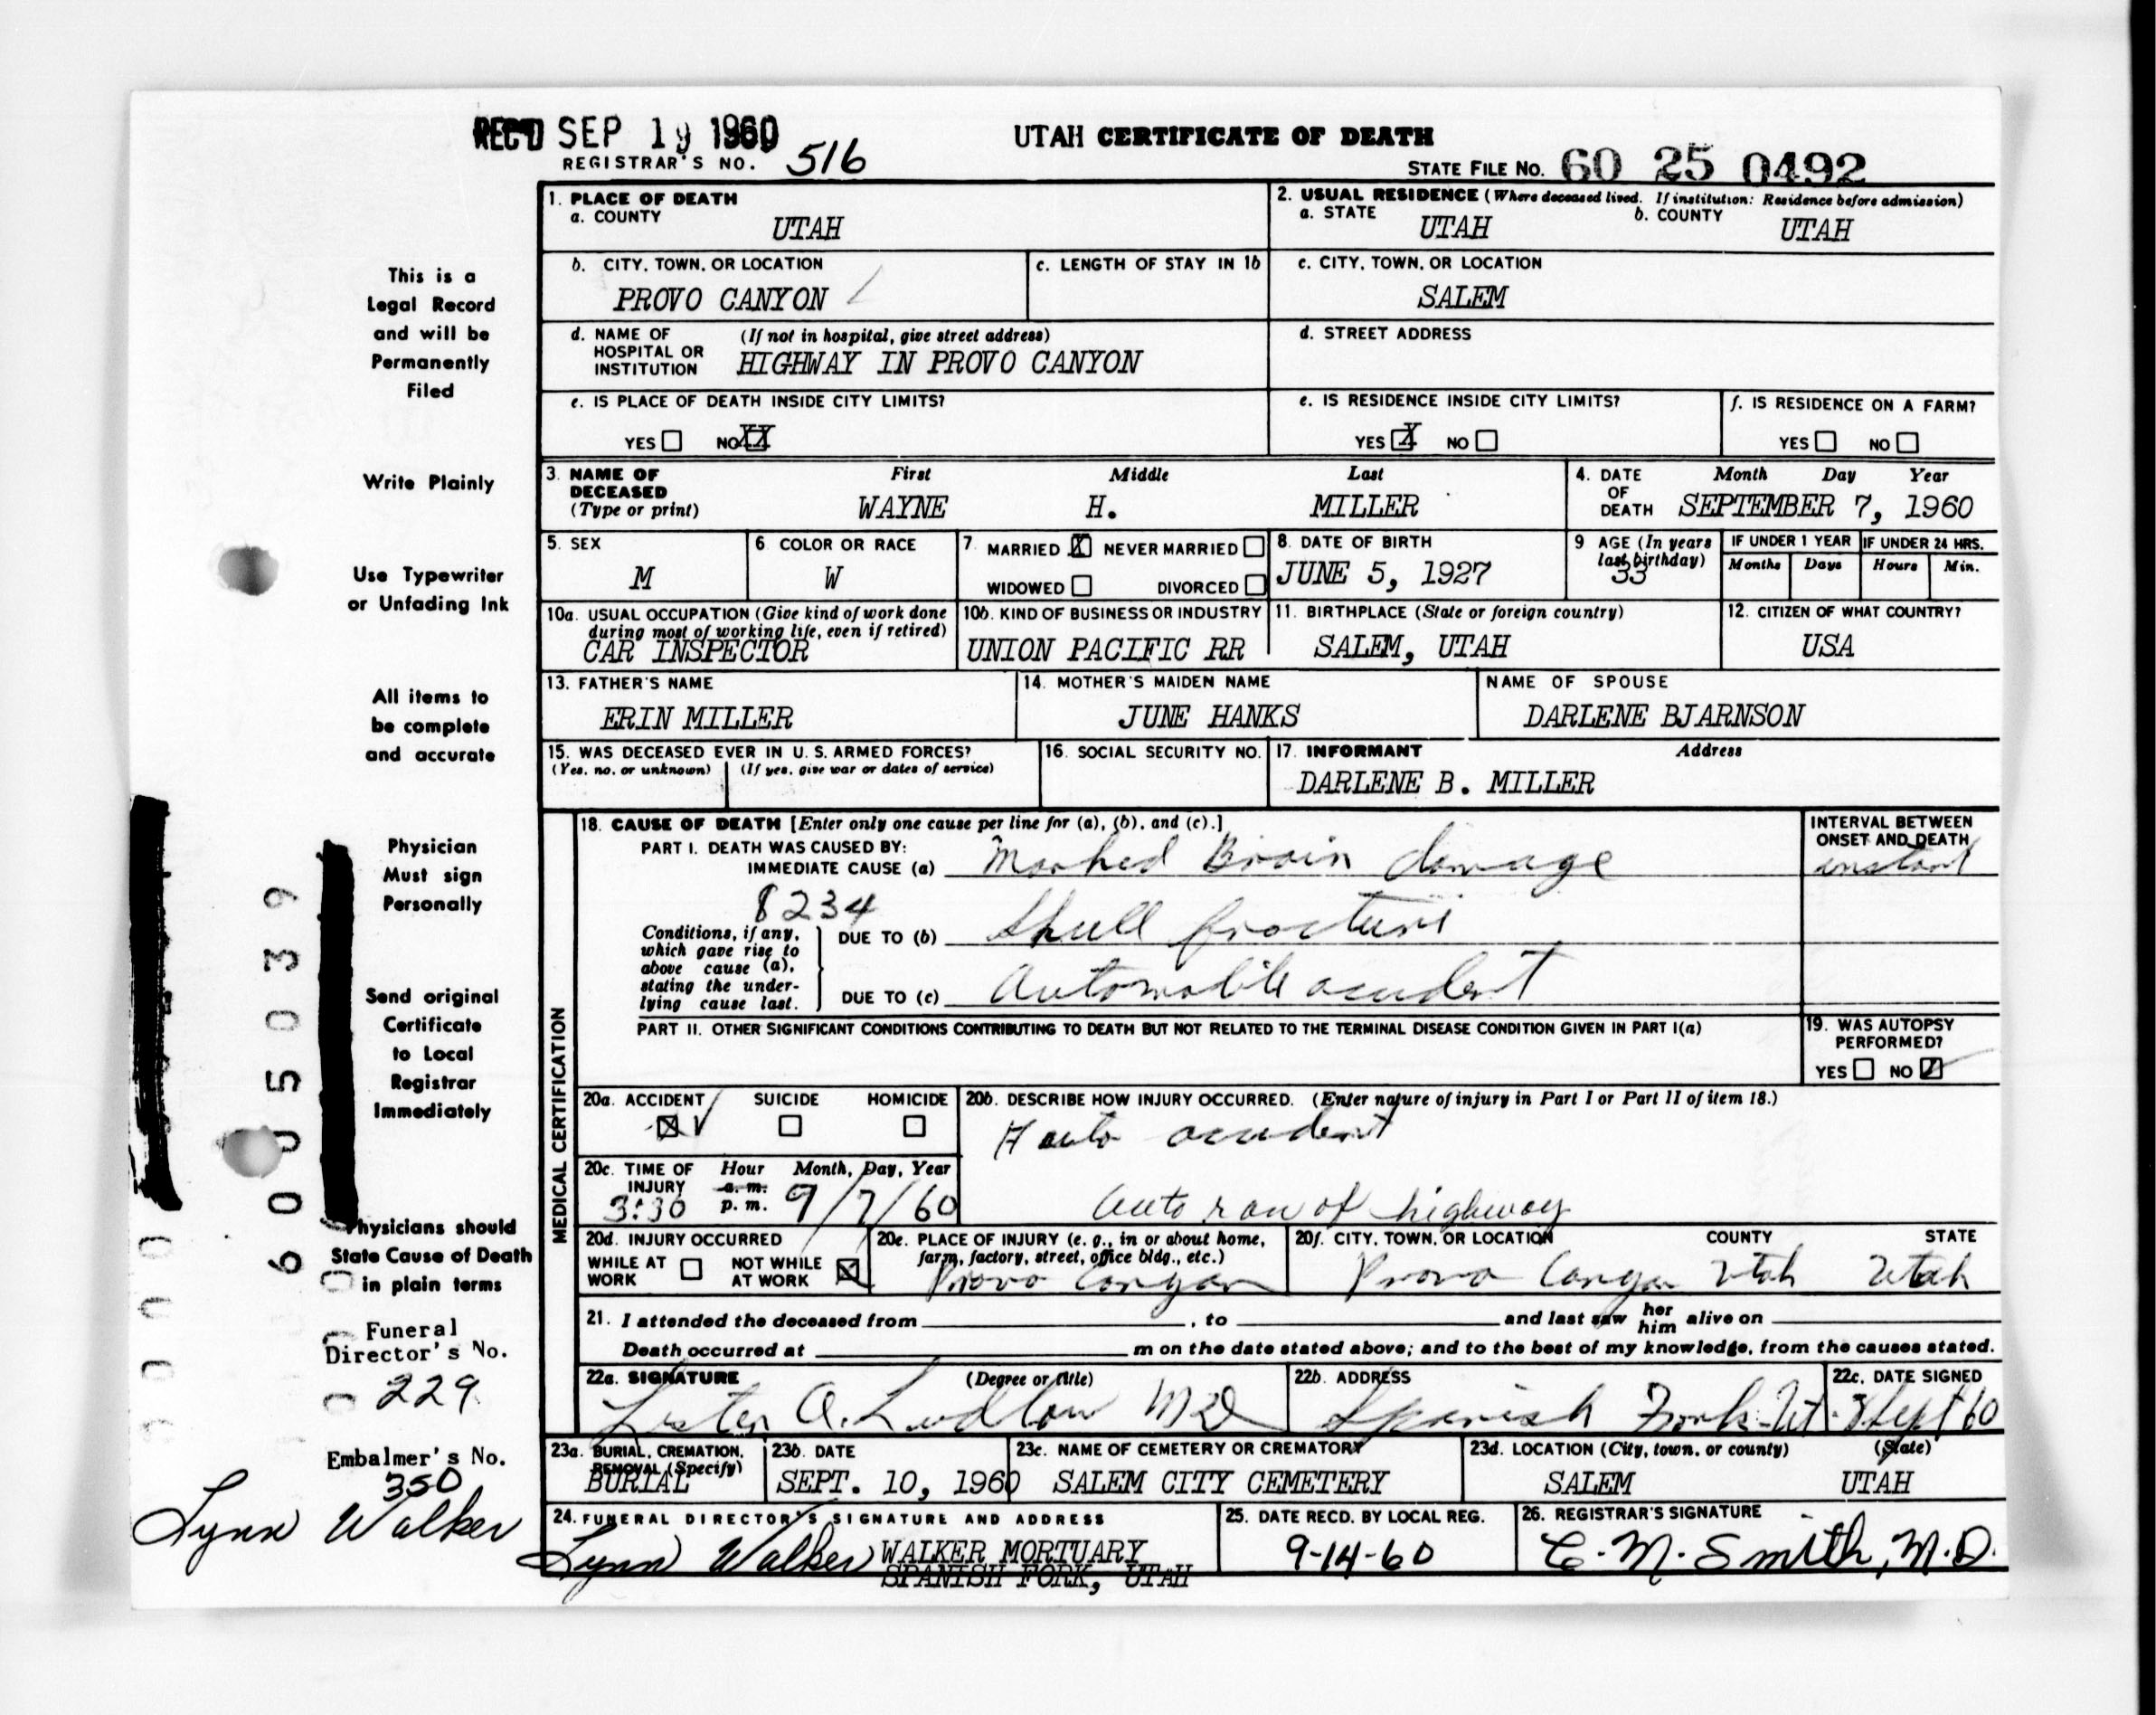 REC'D SEP 19 1960
UTAH CERTIFICATE OF DEATH
REGISTRAR'S NO. 516
STATE FILE NO. 60 25 0492
This is a
Legal Record
and will be
Permanently
Filed
Write Plainly
Use Typewriter
or Unfading Ink
All items to
be complete
and accurate
Physician
Must sign
Personally
Send original
Certificate
to Local
Registrar
Immediately
Physicians should
State Cause of Death
in plain terms
Funeral
Director's No.
229
Embalmer's No.
350
Lynn Walker
1. PLACE OF DEATH
a. COUNTY
UTAH
2. USUAL RESIDENCE (Where deceased lived. If institution: Residence before admission)
a. STATE b. COUNTY
UTAH UTAH
b. CITY, TOWN, OR LOCATION
PROVO CANYON
c. LENGTH OF STAY IN 1b
c. CITY, TOWN, OR LOCATION
SALEM
d. NAME OF (If not in hospital, give street address)
HOSPITAL OR
INSTITUTION HIGHWAY IN PROVO CANYON
d. STREET ADDRESS
e. IS PLACE OF DEATH INSIDE CITY LIMITS?
YES NO XX
e. IS RESIDENCE INSIDE CITY LIMITS?
YES X NO
f. IS RESIDENCE ON A FARM?
YES NO
3. NAME OF First Middle Last
DECEASED
(Type or print) WAYNE H. MILLER
4. DATE Month Day Year
OF
DEATH SEPTEMBER 7, 1960
5. SEX
M
6 COLOR OR RACE
W
7. MARRIED X NEVER MARRIED
WIDOWED DIVORCED
8. DATE OF BIRTH
JUNE 5, 1927
9 AGE (In years
last birthday)
33
IF UNDER 1 YEAR IF UNDER 24 HRS.
Months Days Hours Min.
10a. USUAL OCCUPATION (Give kind of work done
during most of working life, even if retired)
CAR INSPECTOR
10b. KIND OF BUSINESS OR INDUSTRY
UNION PACIFIC RR
11. BIRTHPLACE (State or foreign country)
SALEM, UTAH
12. CITIZEN OF WHAT COUNTRY?
USA
13. FATHER'S NAME
ERIN MILLER
14. MOTHER'S MAIDEN NAME
JUNE HANKS
NAME OF SPOUSE
DARLENE BJARNSON
15. WAS DECEASED EVER IN U. S. ARMED FORCES?
(Yes, no, or unknown) (If yes, give war or dates of service)
16. SOCIAL SECURITY NO.
17. INFORMANT Address
DARLENE B. MILLER
MEDICAL CERTIFICATION
18. CAUSE OF DEATH [Enter only one cause per line for (a), (b), and (c).]
PART I. DEATH WAS CAUSED BY:
IMMEDIATE CAUSE (a) Marked Brain damage
INTERVAL BETWEEN
ONSET AND DEATH
instant
8234
Conditions, if any,
which gave rise to
above cause (a),
stating the under-
lying cause last.
DUE TO (b) Skull fracture
DUE TO (c) Automobile accident
PART II. OTHER SIGNIFICANT CONDITIONS CONTRIBUTING TO DEATH BUT NOT RELATED TO THE TERMINAL DISEASE CONDITION GIVEN IN PART I(a)
19. WAS AUTOPSY
PERFORMED?
YES NO
20a. ACCIDENT SUICIDE HOMICIDE
20b. DESCRIBE HOW INJURY OCCURRED. (Enter nature of injury in Part I or Part II of item 18.)
auto accident
Auto ran of highway
20c. TIME OF Hour Month, Day, Year
INJURY a. m.
3:30 p. m. 9/7/60
20d. INJURY OCCURRED
WHILE AT NOT WHILE
WORK AT WORK
20e. PLACE OF INJURY (e. g., in or about home,
farm, factory, street, office bldg., etc.)
Provo Canyon
20f. CITY, TOWN, OR LOCATION COUNTY STATE
Provo Canyon Utah Utah
21. I attended the deceased from , to and last saw her him alive on
Death occurred at m on the date stated above; and to the best of my knowledge, from the causes stated.
22a. SIGNATURE (Degree or title)
Lester A. Ludlow MD
22b. ADDRESS
Spanish Fork Ut.
22c. DATE SIGNED
8 Sept 60
23a. BURIAL, CREMATION,
REMOVAL (Specify)
BURIAL
23b. DATE
SEPT. 10, 1960
23c. NAME OF CEMETERY OR CREMATORY
SALEM CITY CEMETERY
23d. LOCATION (City, town, or county) (State)
SALEM UTAH
24. FUNERAL DIRECTOR'S SIGNATURE AND ADDRESS
Lynn Walker WALKER MORTUARY
SPANISH FORK, UTAH
25. DATE RECD. BY LOCAL REG.
9-14-60
26. REGISTRAR'S SIGNATURE
C. M. Smith, M.D.